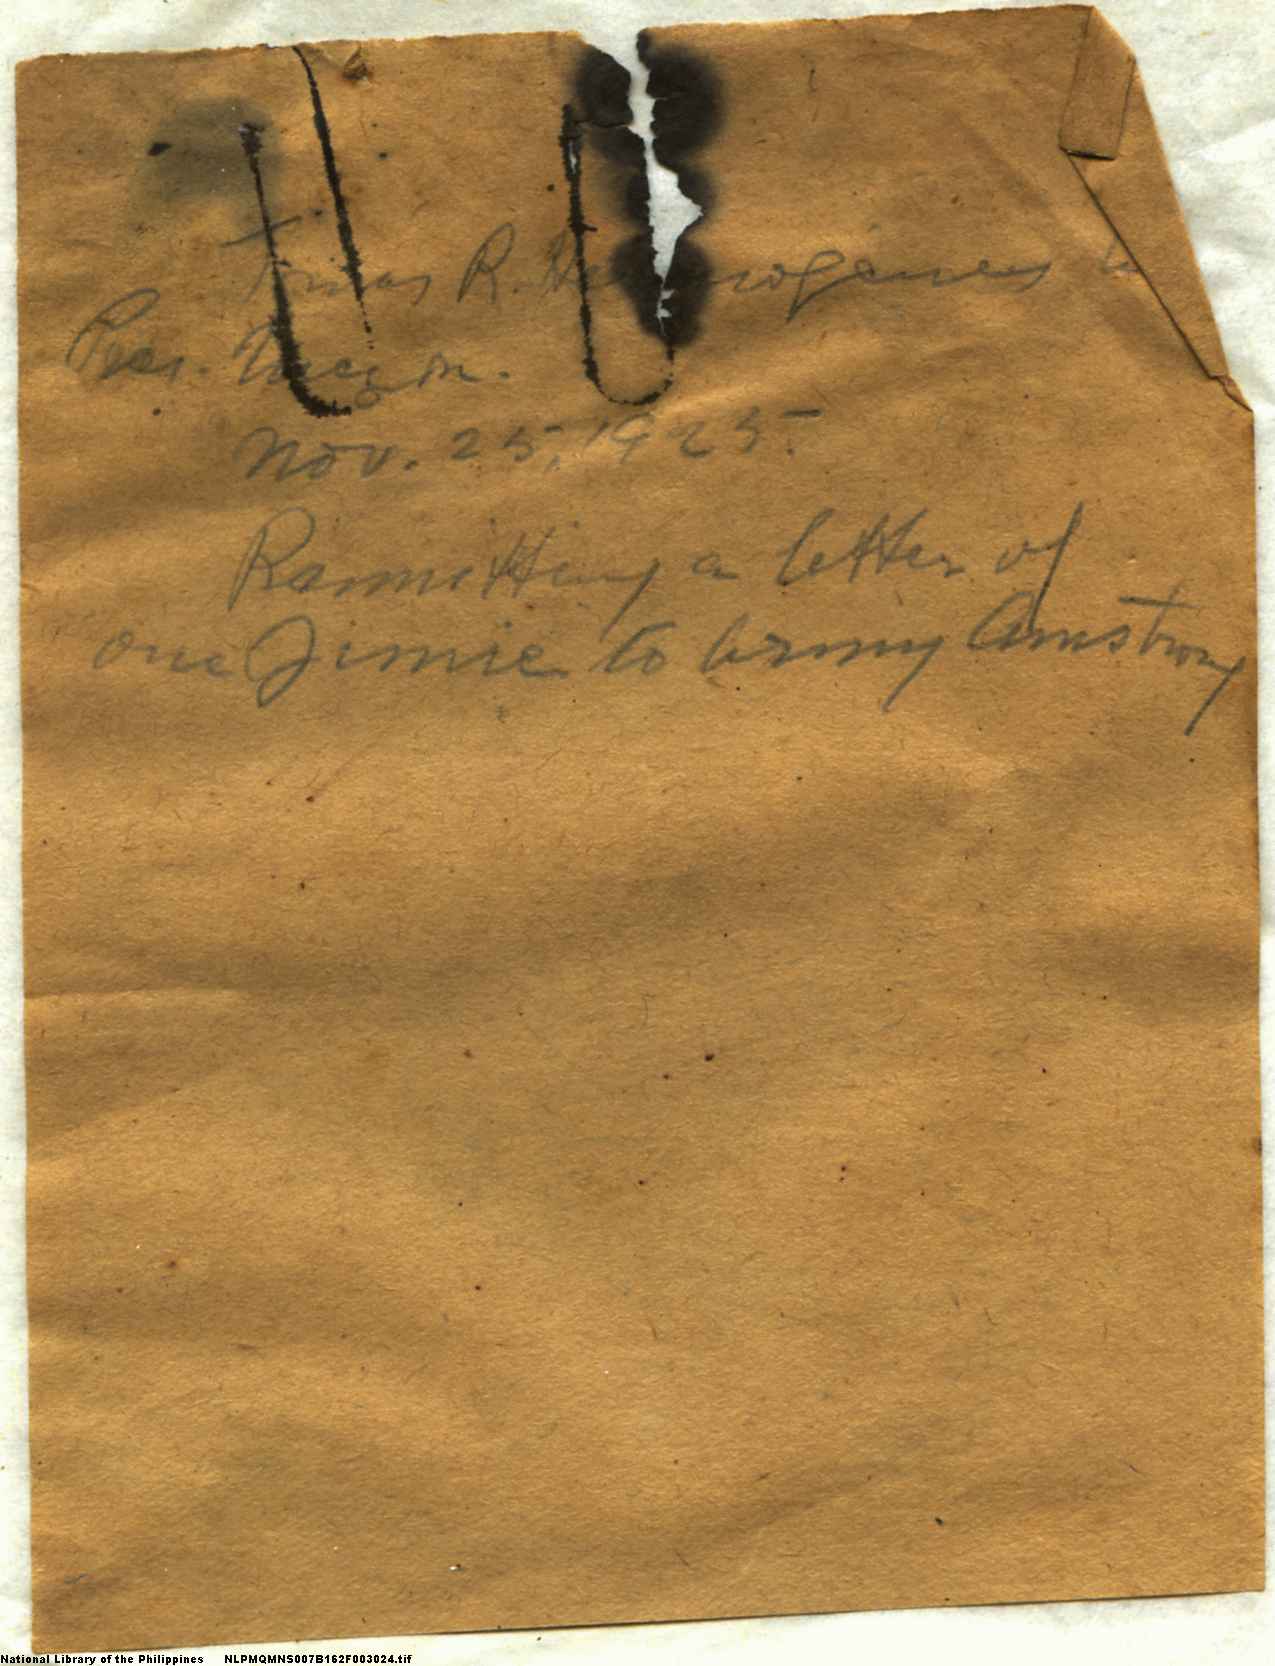 Tomas R. Hermogenes to
Pres. Quezon.
Nov. 25, 1925.
Ransmitting a letter of
one Jimmie to Army Amstrong
National Library of the Philippines NLPMQMNS007B162F003024.tif